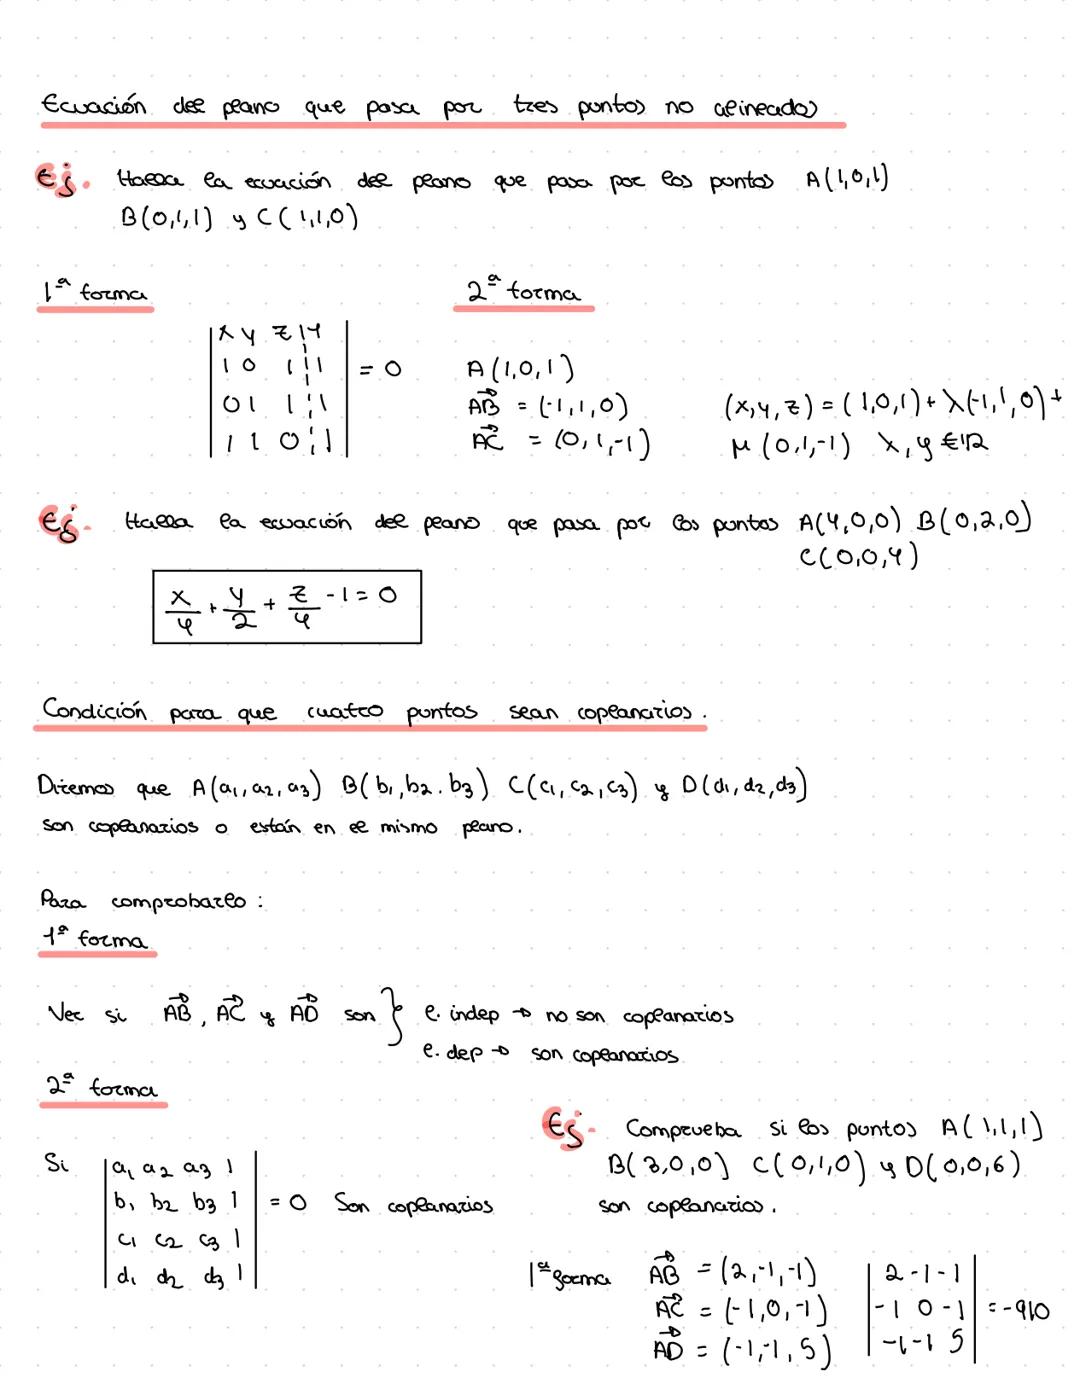 Ecuación del plano que pasa por tres puntos no alineados
Ej. Halla la ecuación del plano que pasa por los puntos A(1,0,1)
B(0,1,1) y C(1,1,0)
1ª forma
2ª forma
|x y z 1|
|1 0 1 1| = 0
|0 1 1 1|
|1 1 0 1|
A(1,0,1)
AB = (-1,1,0)
AC = (0,1,-1)
(x,y,z) = (1,0,1) + λ(-1,1,0) +
μ(0,1,-1) λ, y ∈ IR
Ej. Halla la ecuación del plano que pasa por los puntos A(4,0,0) B(0,2,0)
C(0,0,4)
x/4 + y/2 + z/4 - 1 = 0
Condición para que cuatro puntos sean coplanarios.
Diremos que A(a₁,a₂,a₃) B(b₁,b₂.b₃) C(c₁,c₂,c₃) y D(d₁,d₂,d₃)
son coplanarios o están en el mismo plano.
Para comprobarlo :
1ª forma
Ver si AB, AC y AD son } l. indep → no son coplanarios
l. dep → son coplanarios
2ª forma
Si |a₁ a₂ a₃ 1|
|b₁ b₂ b₃ 1| = 0 Son coplanarios
|c₁ c₂ c₃ 1|
|d₁ d₂ d₃ 1|
Ej. Comprueba si los puntos A(1,1,1)
B(3,0,0) C(0,1,0) y D(0,0,6)
son coplanarios.
1ª forma AB = (2,-1,-1)
AC = (-1,0,-1)
AD = (-1,-1,5)
|2 -1 -1|
|-1 0 -1| = -9
|-1 -1 5|